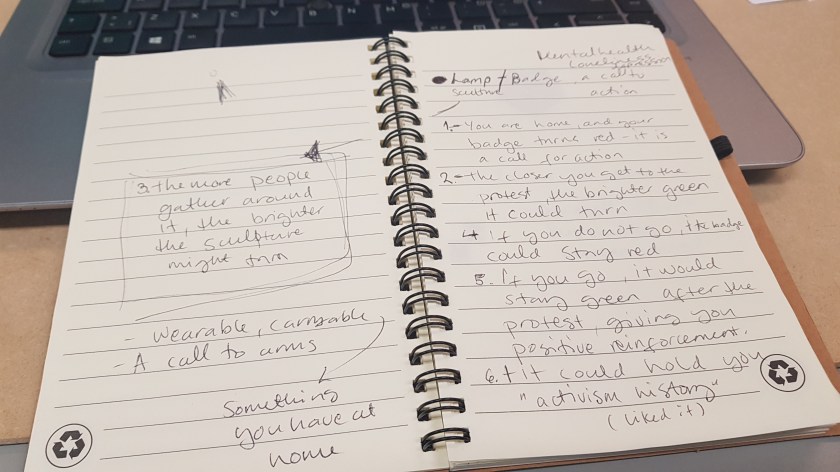 3. the more people
gather around
it, the brighter
the sculpture
might turn
- wearable, carryable
- A call to arms
Something
you have at
home
Mental health
Loneliness
Lamp / Badge, a call to
sculpture action
1. - You are home, and your
badge turns red - it is
a call for action
2. - the closer you get to the
protest, the brighter green
it could turn
4 If you do not go, the badge
could stay red
5. If you go, it would
stay green after the
protest, giving you
positive reinforcement.
6. it could hold you
"activism history"
(liked it)